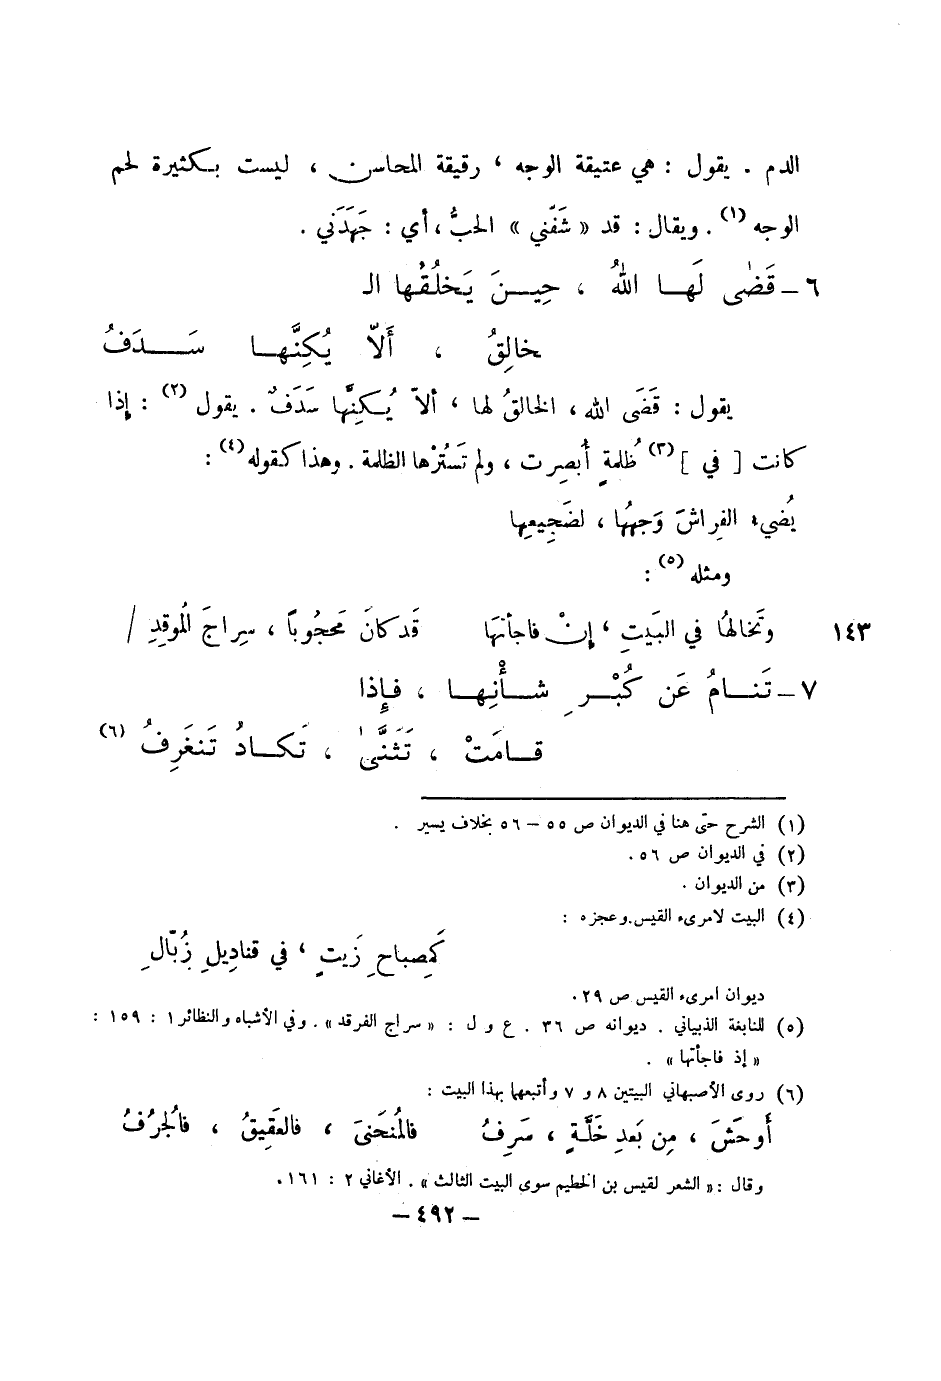 الدم . يقول : هي عتيقة الوجه ، رقيقة المحاسن ، ليست بكثيرة لحم
الوجه (١) . ويقال : قد « شَفّني » الحبُّ ، أي : جَهَدَني .
٦ – قَضٰى لَها اللهُ ، حِينَ يَخلُقُها الـ
خالِقُ ، أَلاّ يُكِنَّها سَدَفُ
يقول : قَضَى الله ، الخالقُ لها ، ألاّ يُكِنَّها سَدَفٌ . يقول (٢) : إذا
كانت [ في ] (٣) ظُلمةٍ أُبصِرت ، ولم تَستُرْها الظلمة . وهذا كقوله (٤) :
يُضيء الفِراشَ وَجهُها ، لضَجِيعِها
ومثله (٥) :
١٤٣ وتَخالهُا في البَيتِ ، إنْ فاجأتَها قَد كانَ مَحجُوباً ، سِراجَ المُوقِدِ /
٧ – تَنامُ عَن كُبْرِ شأْنِها ، فإِذا
قامَتْ ، تَثَنَّىٰ ، تَكادُ تَنغَرِفُ (٦)
(١) الشرح حتى هنا في الديوان ص ٥٥ – ٥٦ بخلاف يسير .
(٢) في الديوان ص ٥٦ .
(٣) من الديوان .
(٤) البيت لامرىء القيس . وعجزه :
كَمِصباحِ زَيتٍ ، في قناديلِ ذُبّالِ
ديوان امرىء القيس ص ٢٩ .
(٥) للنابغة الذبياني . ديوانه ص ٣٦ . ع و ل : « سراج الفرقد » . وفي الأشباه والنظائر ١ : ١٥٩ :
« إذ فاجأتها » .
(٦) روى الأصبهاني البيتين ٨ و ٧ وأتبعها بهذا البيت :
أَوحَشَ ، مِن بَعدِ خَلَّةٍ ، سَرِفُ فالمُنحَنىَ ، فالعَقِيقُ ، فالجُرُفُ
وقال : « الشعر لقيس بن الخطيم سوى البيت الثالث » . الأغاني ٢ : ١٦١ .
– ٤٩٢ –